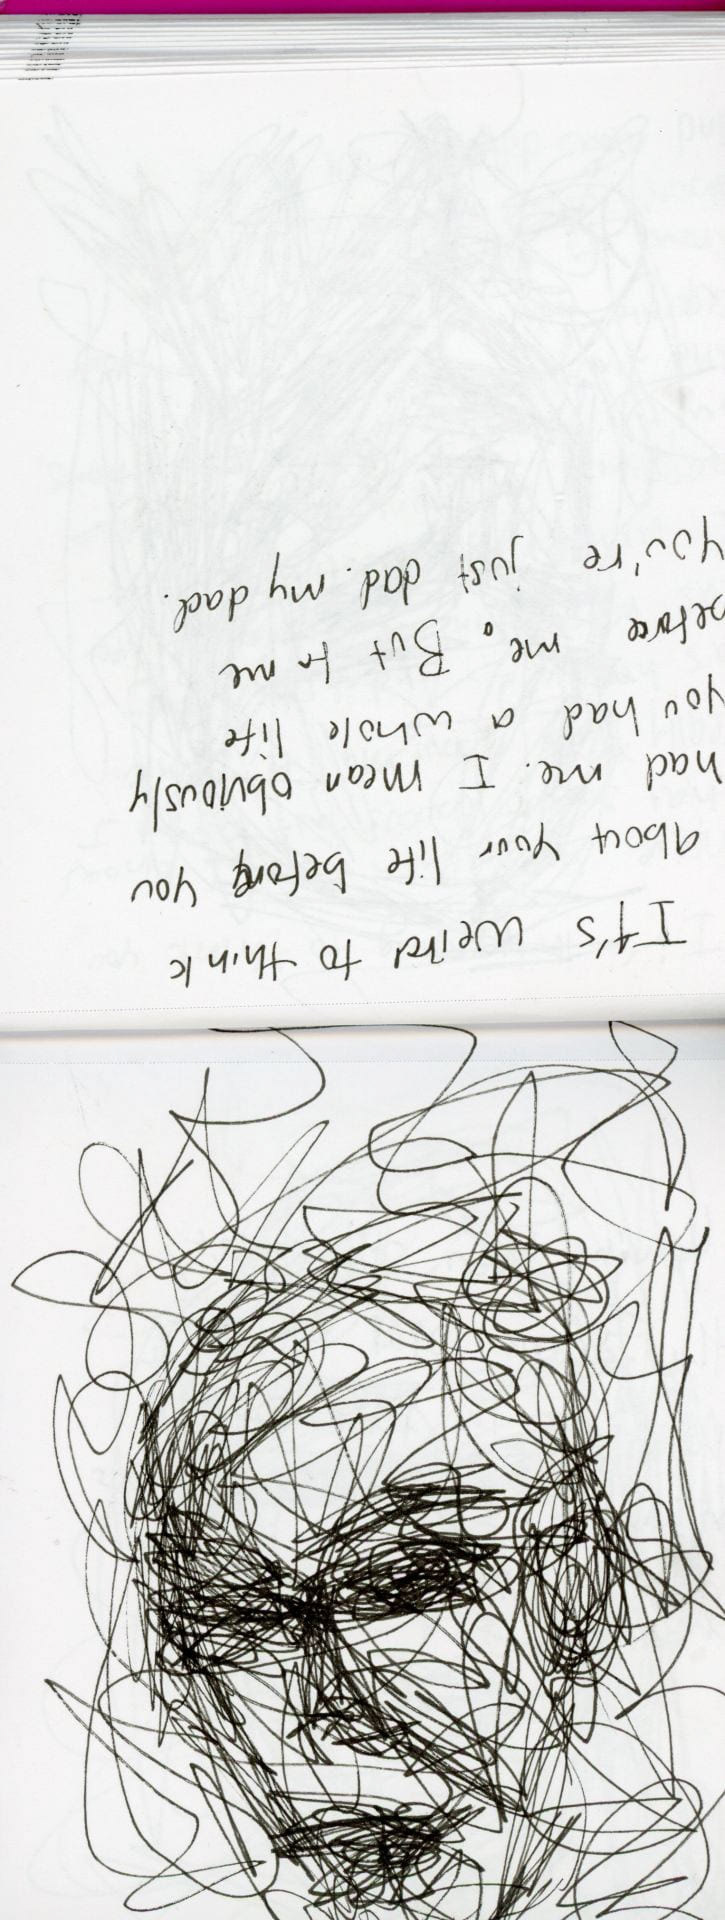 It's weird to think
about your life before you
had me. I mean obviously
you had a whole life
before me. But to me
you're just dad. my dad.